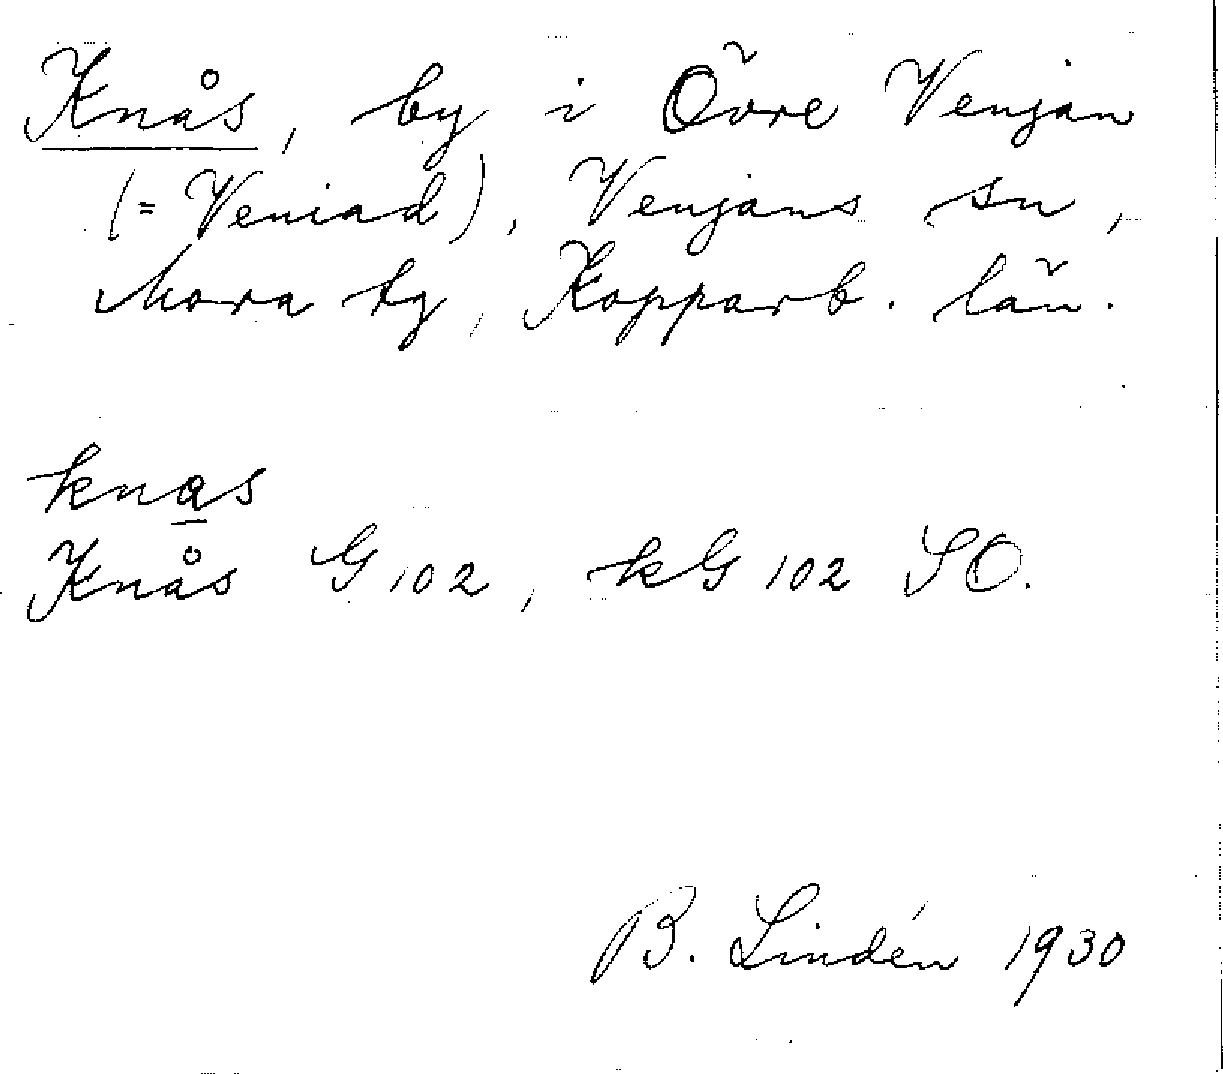 Knås, by i Övre Venjan
(= Veniad), Venjans sn,
Mora tg, Kopparb. län.
knas
Knås G 102, kG 102 SO.
B. Lindén 1930